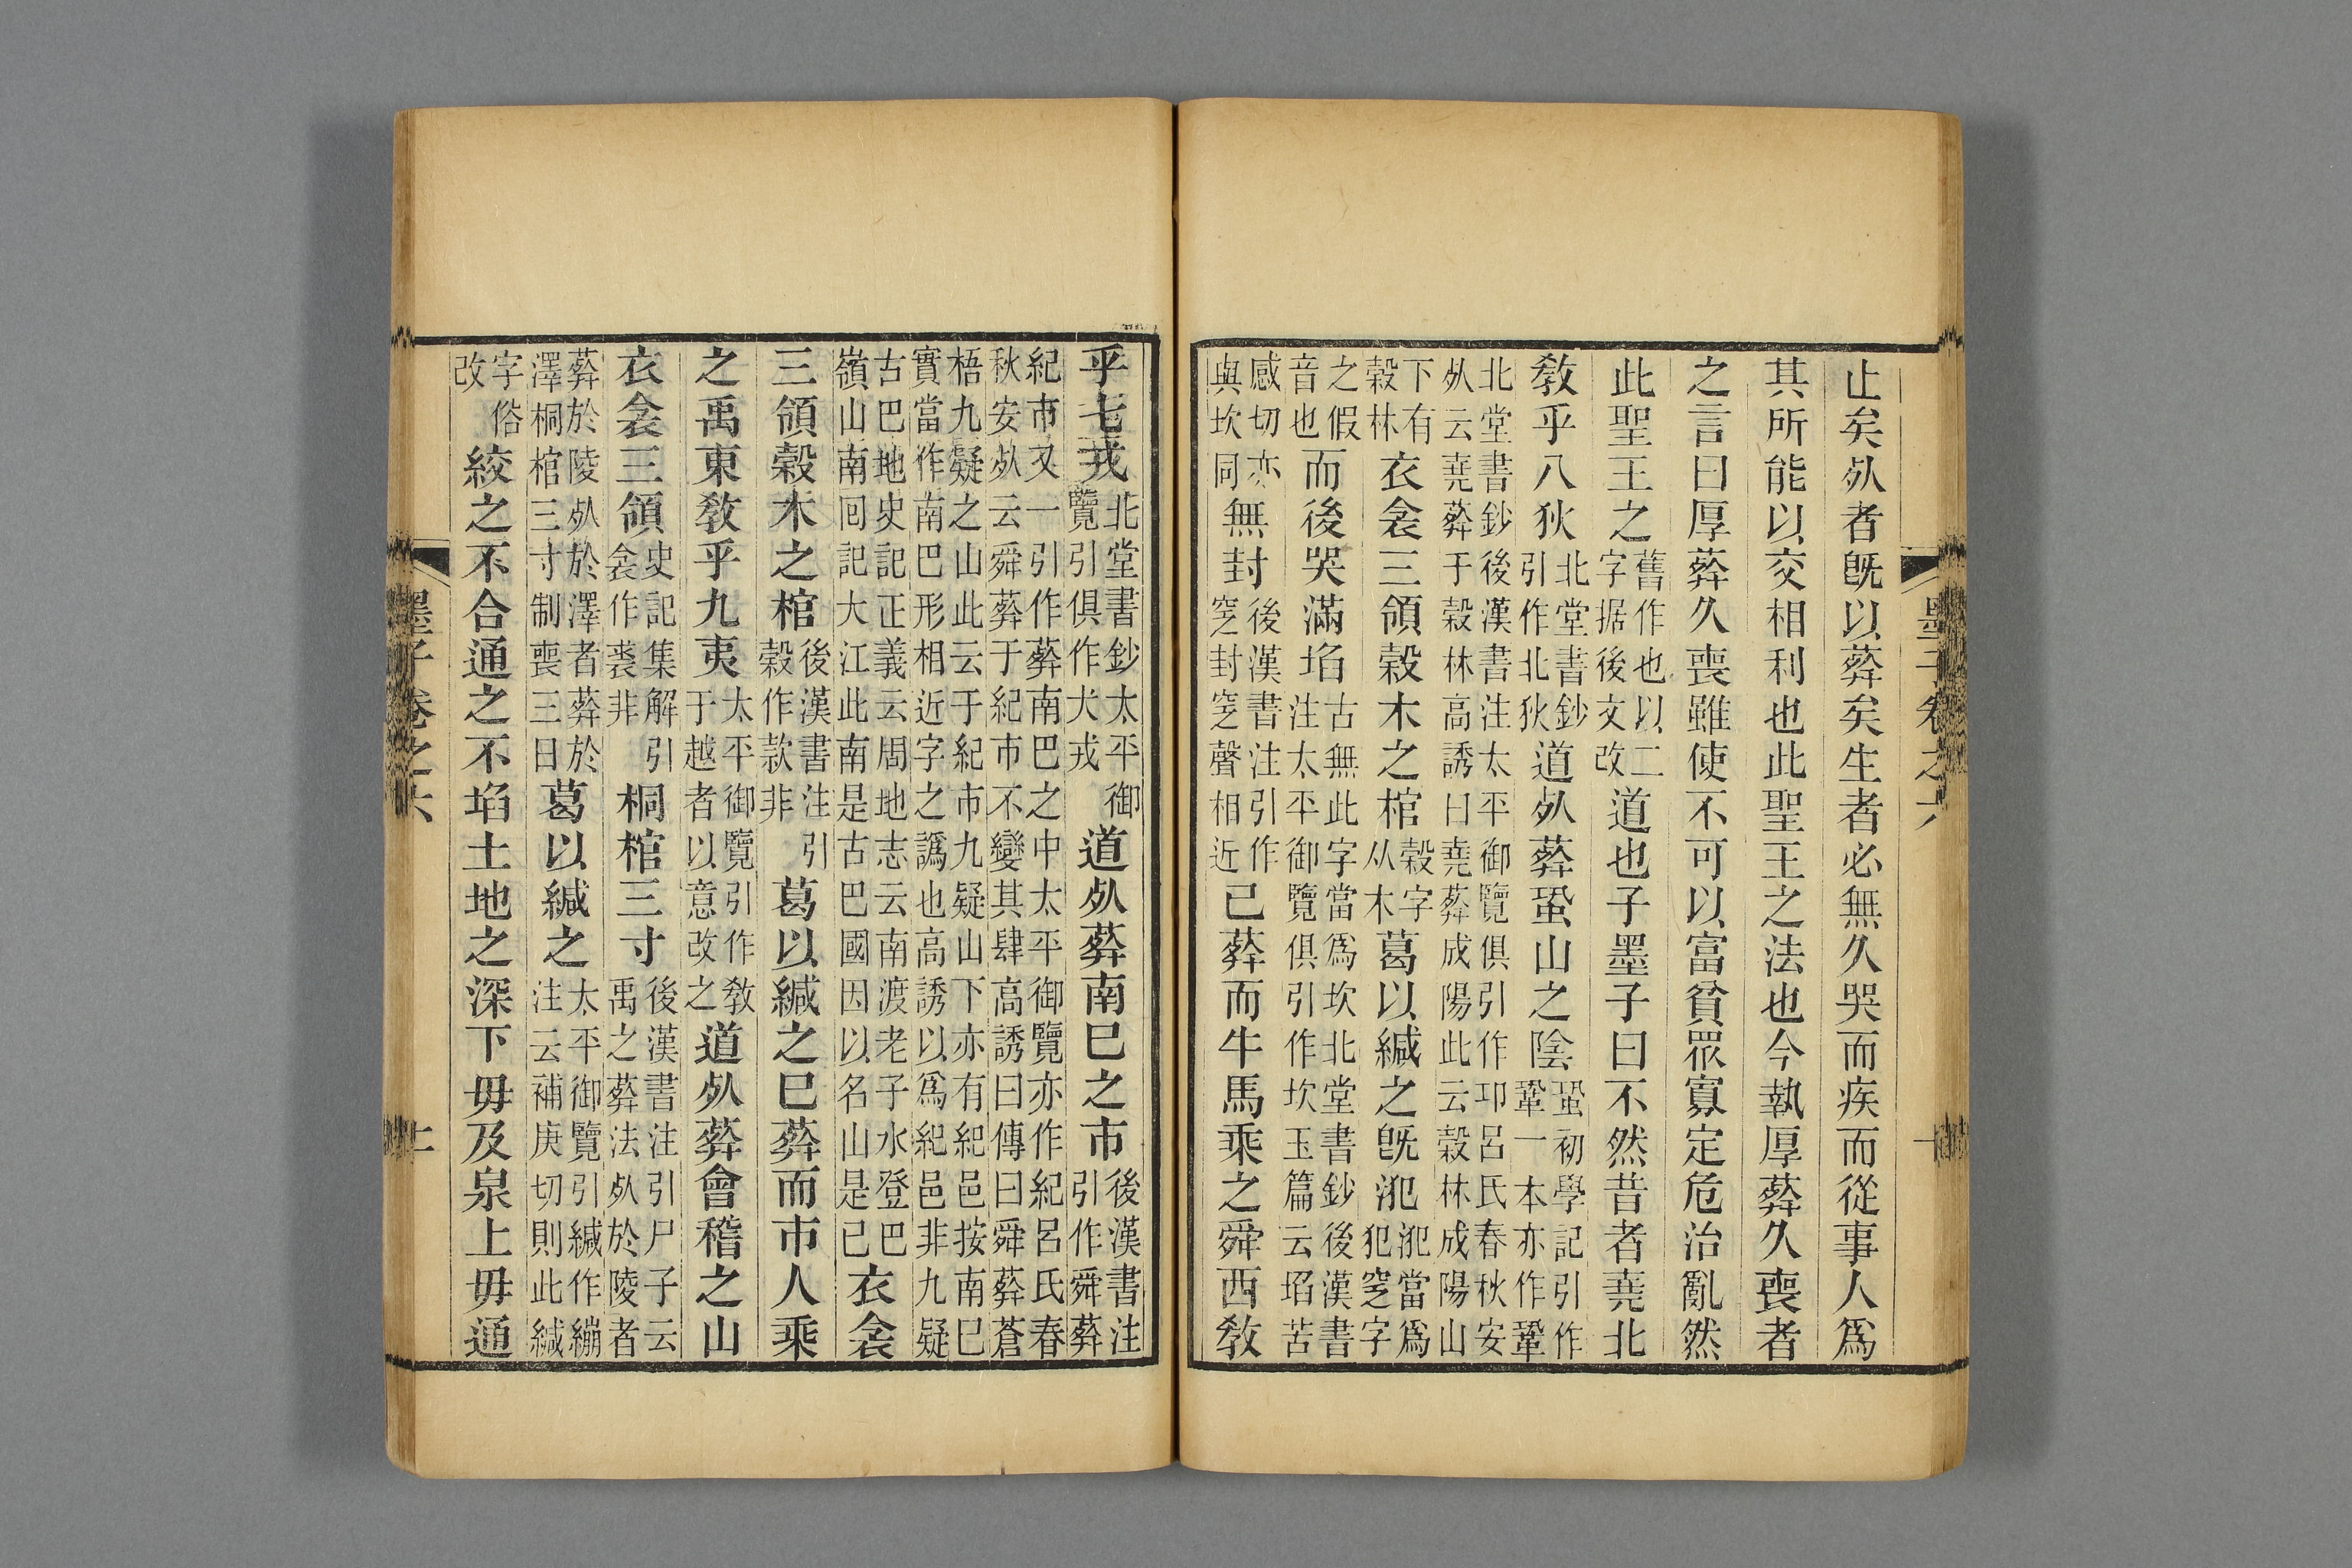 墨子卷之六 十
止矣𣦸者既以葬矣生者必無久哭而疾而從事人爲
其所能以交相利也此聖王之法也今執厚葬久喪者
之言曰厚葬久喪雖使不可以富貧眾寡定危治亂然
此聖王之舊作也以二字据後文改道也子墨子曰不然昔者堯北
教乎八狄北堂書鈔引作北狄道𣦸葬蛩山之陰蛩初學記引作鞏一本亦作鞏
北堂書鈔後漢書注太平御覽俱引作邛呂氏春秋安𣦸云堯葬于穀林高誘曰堯葬成陽此云穀林成陽山
下有穀林衣衾三領穀木之棺穀字从木葛以緘之既氾氾當爲犯窆字
之假音也而後哭滿埳古無此字當爲坎北堂書鈔後漢書注太平御覽俱引作坎玉篇云埳苦
感切亦與坎同無封後漢書注引作窆封窆聲相近已葬而牛馬乘之舜西教
乎七戎北堂書鈔太平御覽引俱作犬戎道𣦸葬南巳之市後漢書注引作舜葬
紀市又一引作葬南巴之中太平御覽亦作紀呂氏春秋安𣦸云舜葬于紀市不變其肆高誘曰傳曰舜葬蒼
梧九疑之山此云于紀市九疑山下亦有紀邑按南巳實當作南巴形相近字之譌也高誘以爲紀邑非九疑
古巴地史記正義云周地志云南渡老子水登巴嶺山南回記大江此南是古巴國因以名山是已衣衾
三領穀木之棺後漢書注引穀作款非葛以緘之已葬而市人乘
之禹東教乎九夷太平御覽引作教于越者以意改之道𣦸葬會稽之山
衣衾三領史記集解引衾作裘非桐棺三寸後漢書注引尸子云禹之葬法𣦸於陵者
葬於陵𣦸於澤者葬於澤桐棺三寸制喪三日葛以緘之太平御覽引緘作繃注云補庚切則此緘
字俗改絞之不合通之不埳土地之深下毋及泉上毋通
墨子卷之六 十一